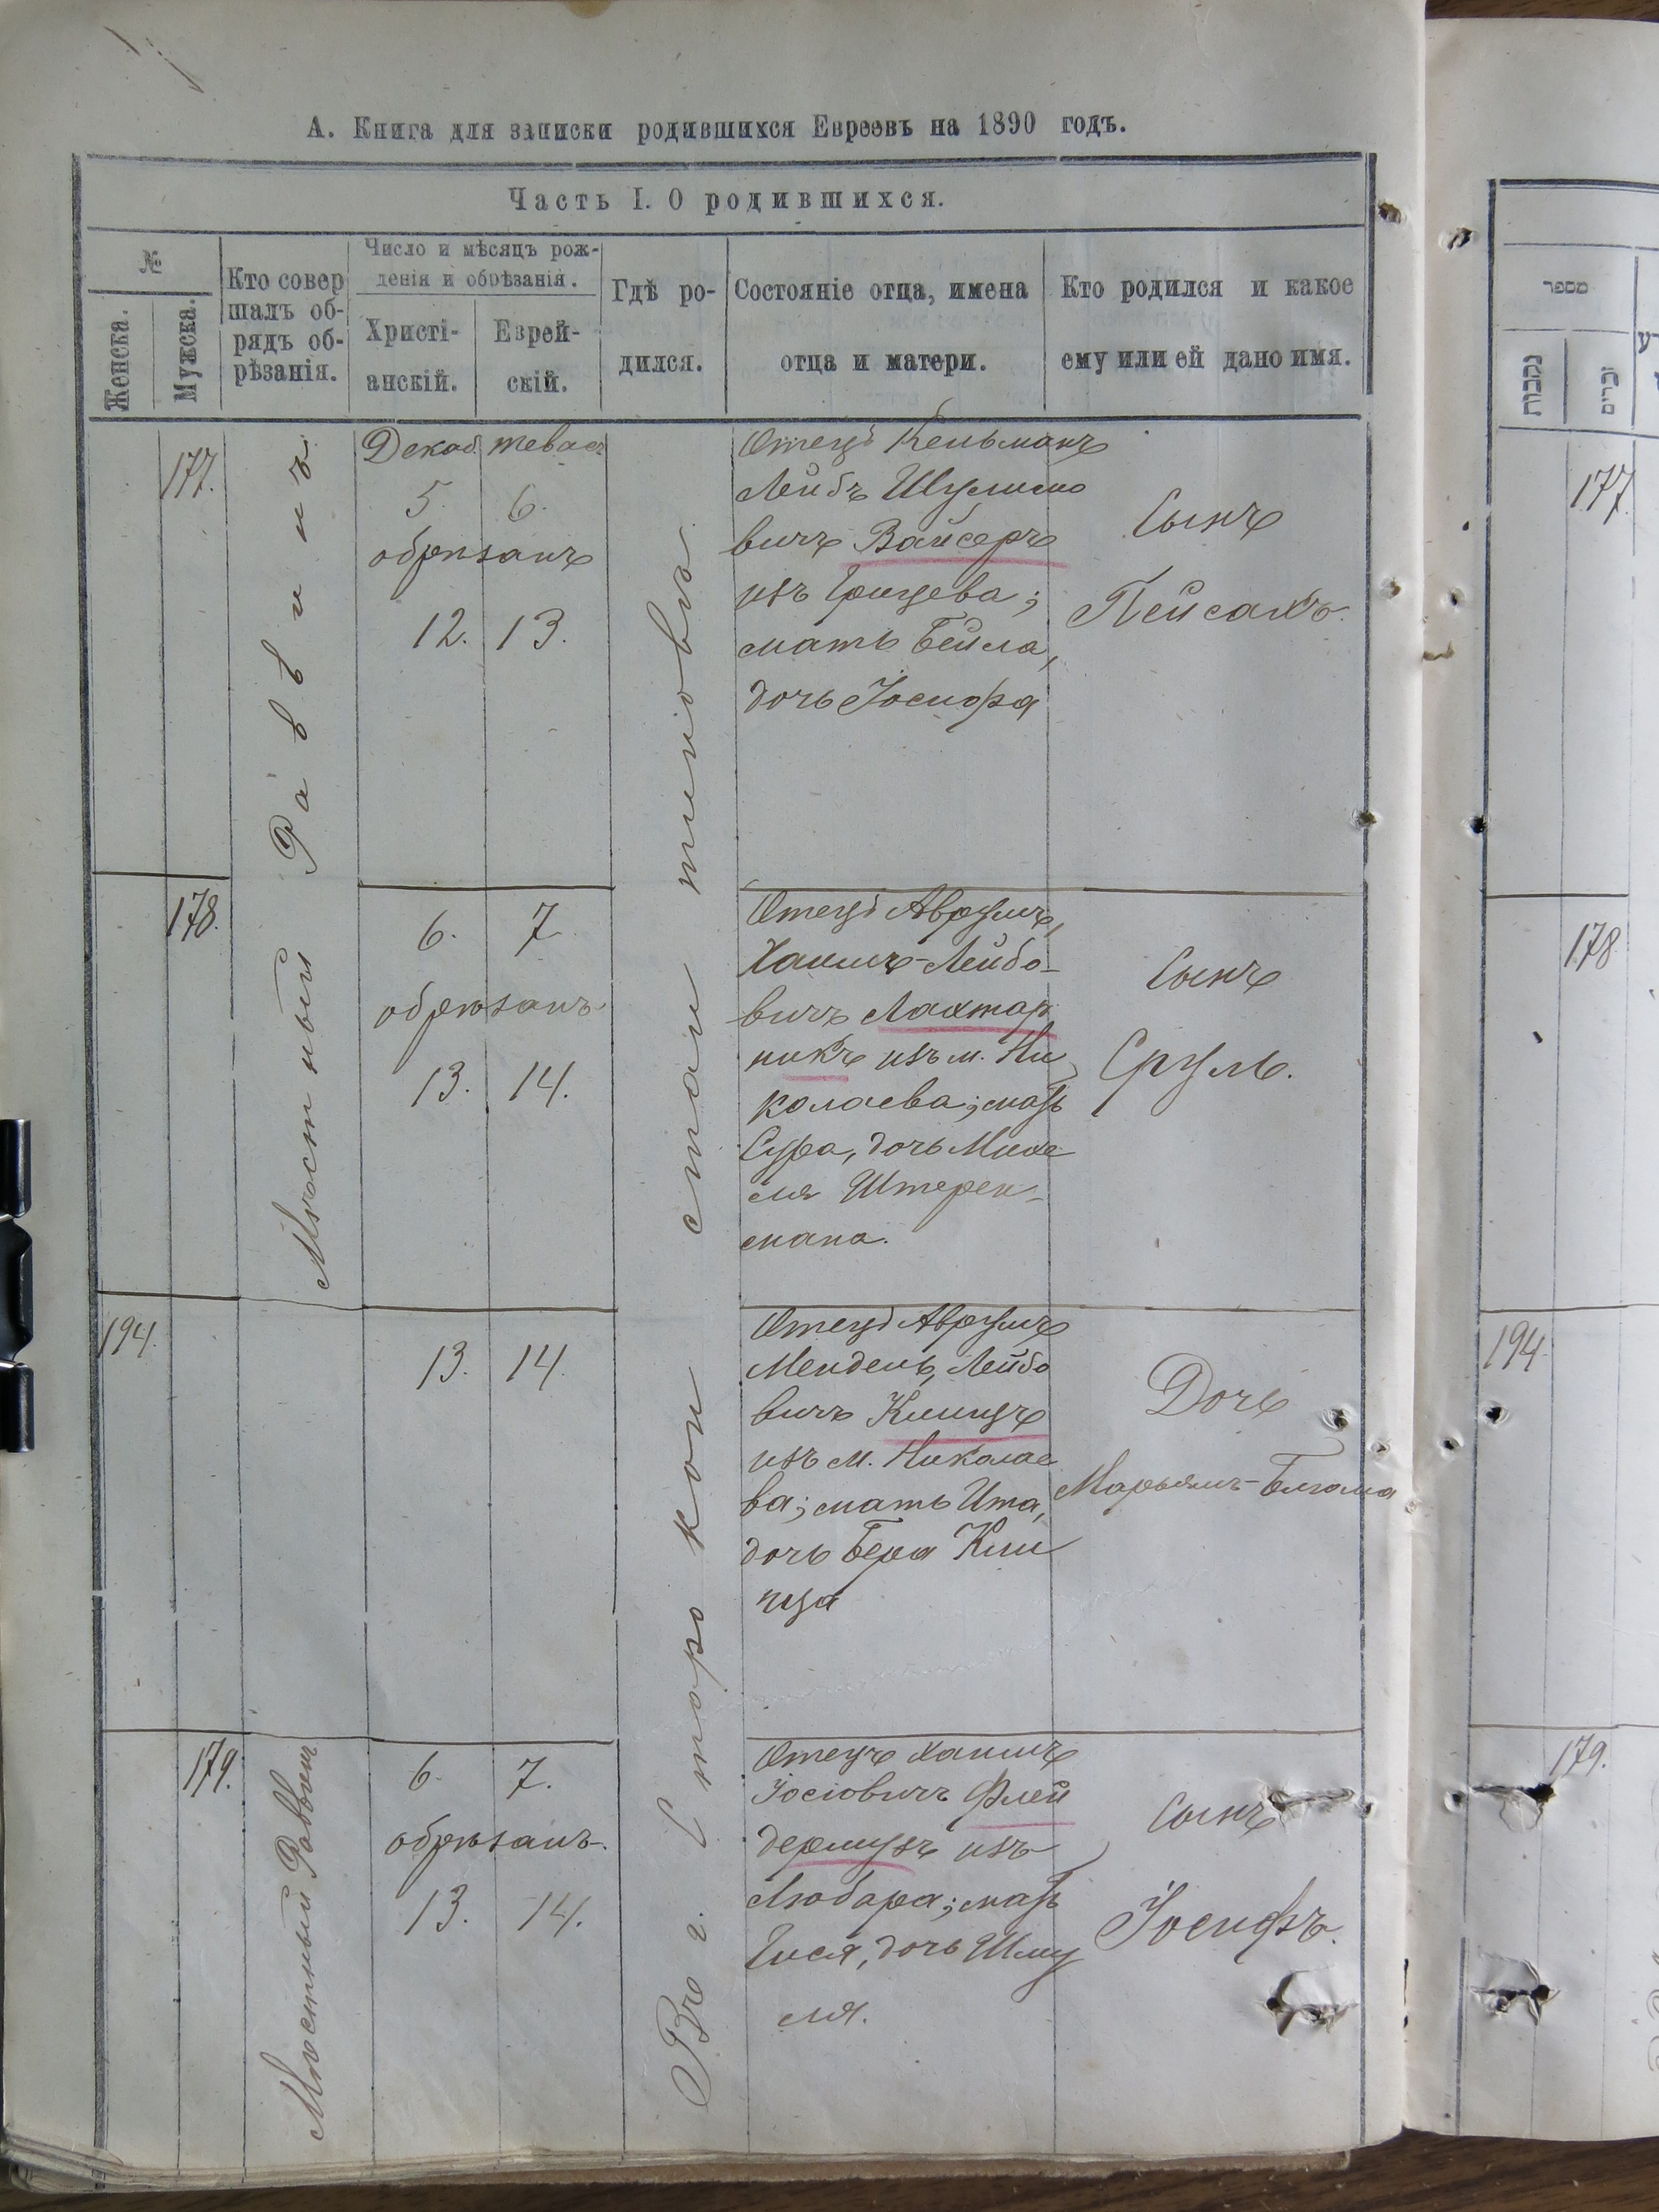 А. Книга для записки родившихся Евреевъ на 1890 годъ.
Часть I. О родившихся.
№
Женска.
Мужска.
Кто совер
шалъ об-
рядъ об-
рѣзанія.
Число и мѣсяцъ рож-
денія и обрѣзанія.
Христі-
анскій.
Еврей-
скій.
Гдѣ ро-
дился.
Состояніе отца, имена
отца и матери.
Кто родился и какое
ему или ей дано имя.
177.
Мѣстный Раввинъ
Декаб. тевас
5. 6.
обрѣзанъ
12. 13.
Въ г. Староконстантиновѣ
Отецъ Кельманъ
Лейбъ Шулимо
вичъ Вайсеръ
изъ Грицева;
мать Бейла,
дочь Іосифа
Сынъ
Пейсахъ.
178.
6. 7
обрѣзанъ
13. 14.
Отецъ Аврумъ,
Хаимъ-Лейбо-
вичъ Лахтар
никъ изъ м. Ни
колаева; мать
Сура, дочь Михе
ля Штерен-
мана.
Сынъ
Сруль.
194.
13. 14.
Отецъ Аврумъ
Мендель, Лейбо
вичъ Клинцъ
изъ м. Николае
ва; мать Ита,
дочь Бера Кли
нца
Дочь
Марьямъ-Блюма
179.
Мѣстный Раввинъ
6. 7.
обрѣзанъ.
13. 14.
Отецъ Хаимъ
Іосіовичъ Флей
дермузъ изъ
Любара; мать
Гися, дочь Шму
ля.
Сынъ
Іосифъ.
מספר
נקבות
זכרים
177
178
194
179.